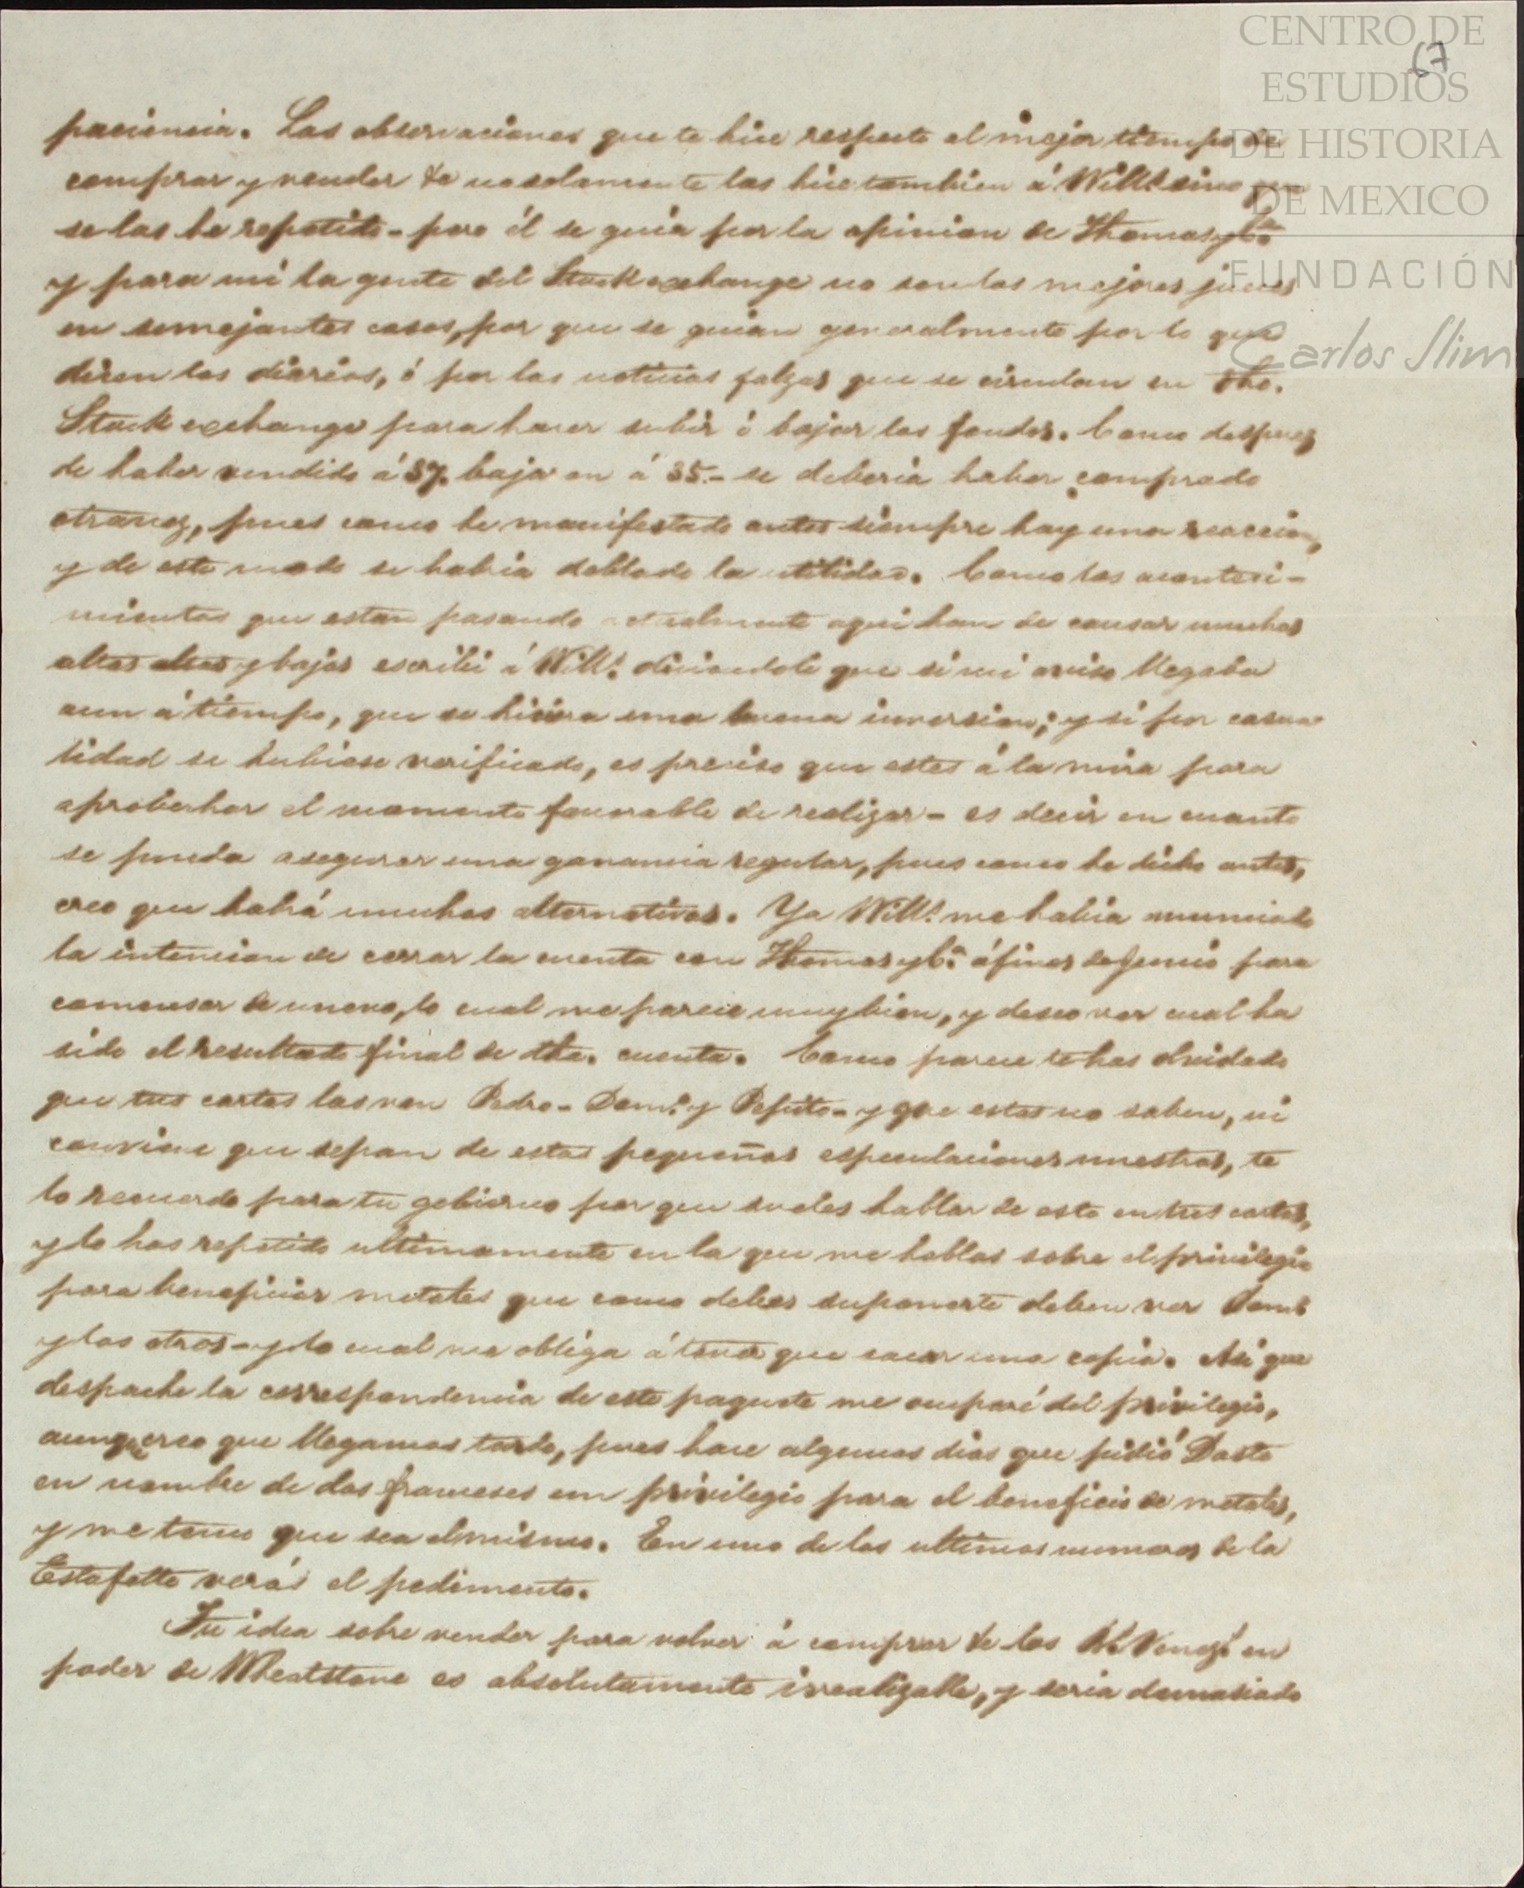 CENTRO DE
ESTUDIOS
DE HISTORIA
DE MEXICO
FUNDACIÓN
Carlos Slim
67
paciencia. Las observaciones que te hice respecto al mejor tiempo de
comprar y vender & no solamente las hice tambien á Will.^m sino que
se las he repetido - pero él se guia por la opinion de Thomas y C.^a
y para mi la gente del Stock exchange no son los mejores jueces
en semejantes casos, por que se guian generalmente por lo que
dicen los diarios, ó por las noticias falzas que se circulan en the.
Stock exchange para hacer subir ó bajar los fondos. Como despuez
de haber vendido á 37. bajaron á 35.- se deberia haber comprado
otravez, pues como he manifestado antes siempre hay una reaccion,
y de este modo se habria doblado la utilidad. Como los aconteci-
mientos que estan pasando actualmente aqui han de causar muchas
altas altas y bajas escribi á Will.^m diciendole que si mi aviso llegaba
aun á tiempo, que se hiciera una buena inversion; y si por casua
lidad se hubiese verificado, es preciso que estes á la mira para
aprobechar el momento favorable de realizar - es decir en cuanto
se pueda asegurar una ganancia regular, pues como he dicho antes,
creo que habrá muchas alternativas. Ya Will.^m me habia anunciado
la intencion de cerrar la cuenta con Thomas y C.^a á fines de Junio para
comensar de nuevo, lo cual me parece muy bien, y deseo ver cual ha
sido el resultado final de dha. cuenta. Como parece te has olvidado
que tus cartas las ven Pedro - Dom.^o y Pepito - y que estos no saben, ni
conviene que sepan de estas pequeñas especulaciones nuestras, te
lo recuerdo para tu gobierno por que sueles hablar de esto en tus cartas,
y lo has repetido ultimamente en la que me hablas sobre el privilegio
para beneficiar metales que como debes suponerte deben ver Dom.^o
y los otros - y lo cual me obliga á tener que sacar una copia. Asi que
despache la correspondencia de este paquete me ocuparé del privilegio,
aunq.^e creo que llegamos tarde, pues hace algunos dias que pidió Dasta
en nombre de dos franceses un privilegio para el beneficio de metales,
y me temo que sea el mismo. En uno de los ultimos numeros de la
Estafette verás el pedimento.
Tu idea sobre vender para volver á comprar de los B.^s Venez.^s en
poder de Wheatstone es absolutamente irrealizable, y seria demasiado